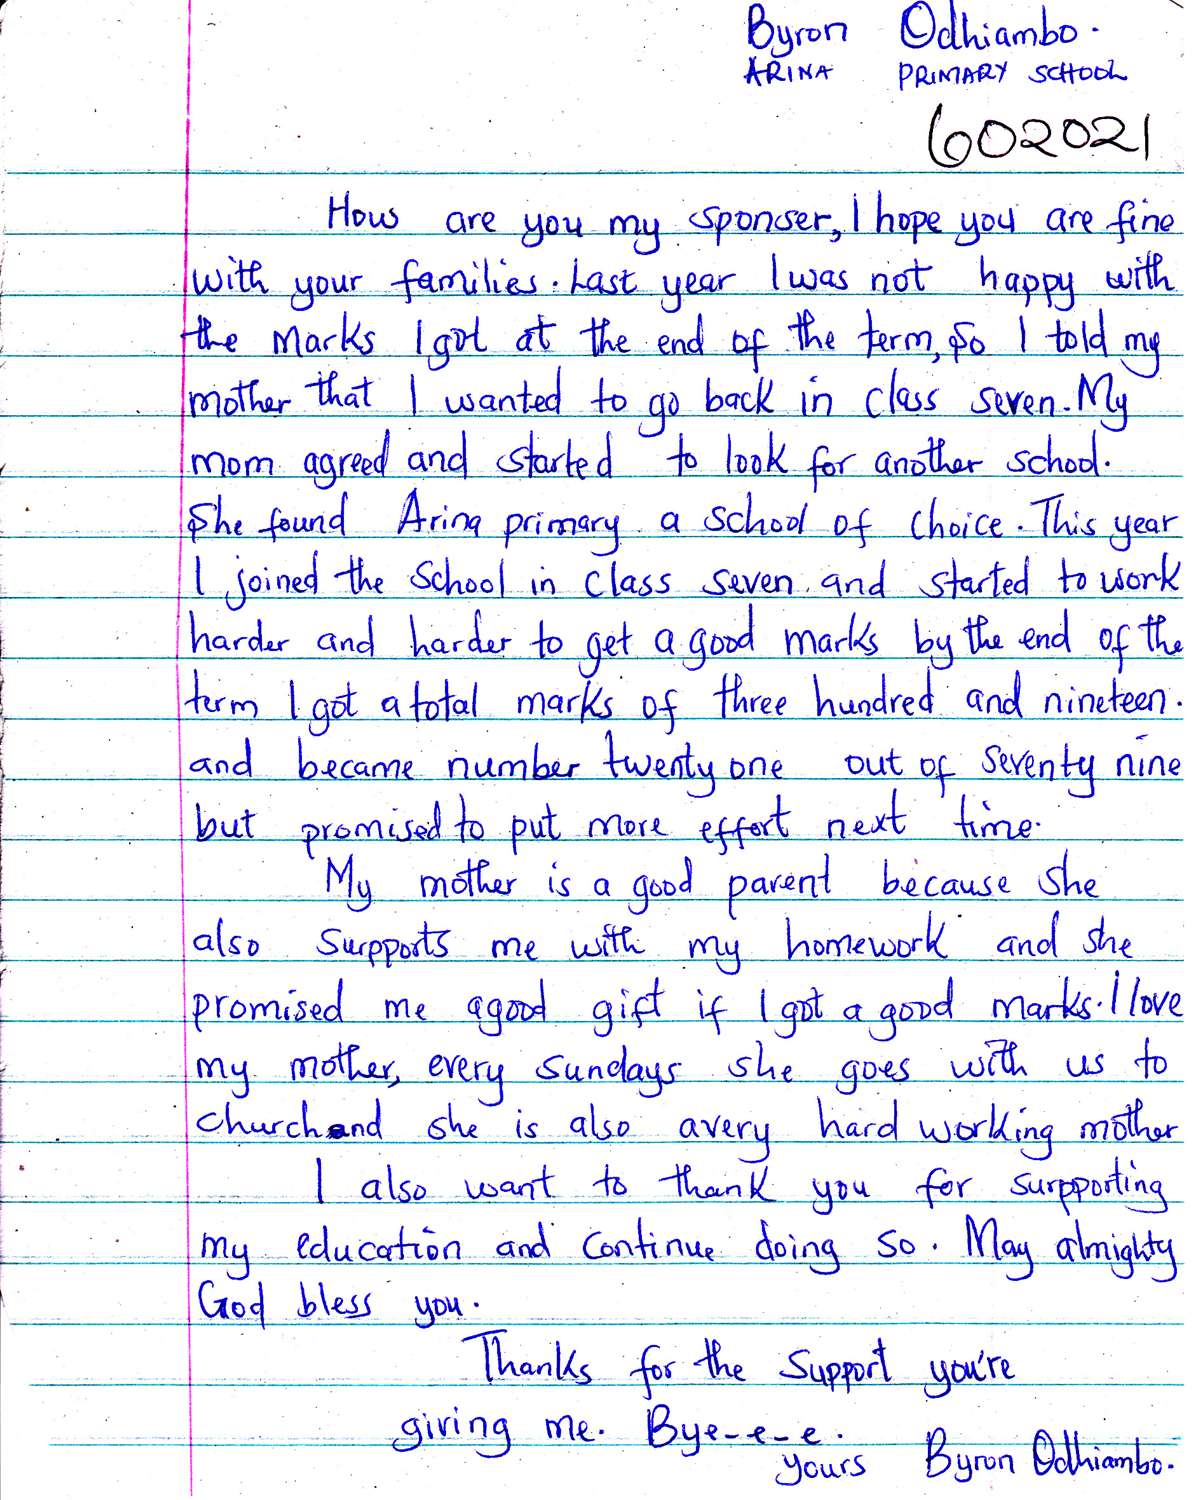 Byron Odhiambo.
ARINA PRIMARY SCHOOL
602021
How are you my sponser, I hope you are fine
with your families. Last year I was not happy with
the Marks I got at the end of the term, So I told my
mother that I wanted to go back in class seven. My
mom agreed and started to look for another school.
She found Arina primary a school of choice. This year
I joined the School in class seven and started to work
harder and harder to get a good marks by the end of the
term I got a total marks of three hundred and nineteen.
and became number twenty one out of seventy nine
but promised to put more effort next time.
My mother is a good parent because she
also surpports me with my homework and she
promised me agood gift if I got a good marks. I love
my mother, every Sundays she goes with us to
church and she is also avery hard working mother
I also want to thank you for surpporting
my education and continue doing so. May almighty
God bless you.
Thanks for the support you're
giving me. Bye-e-e.
yours Byron Odhiambo.